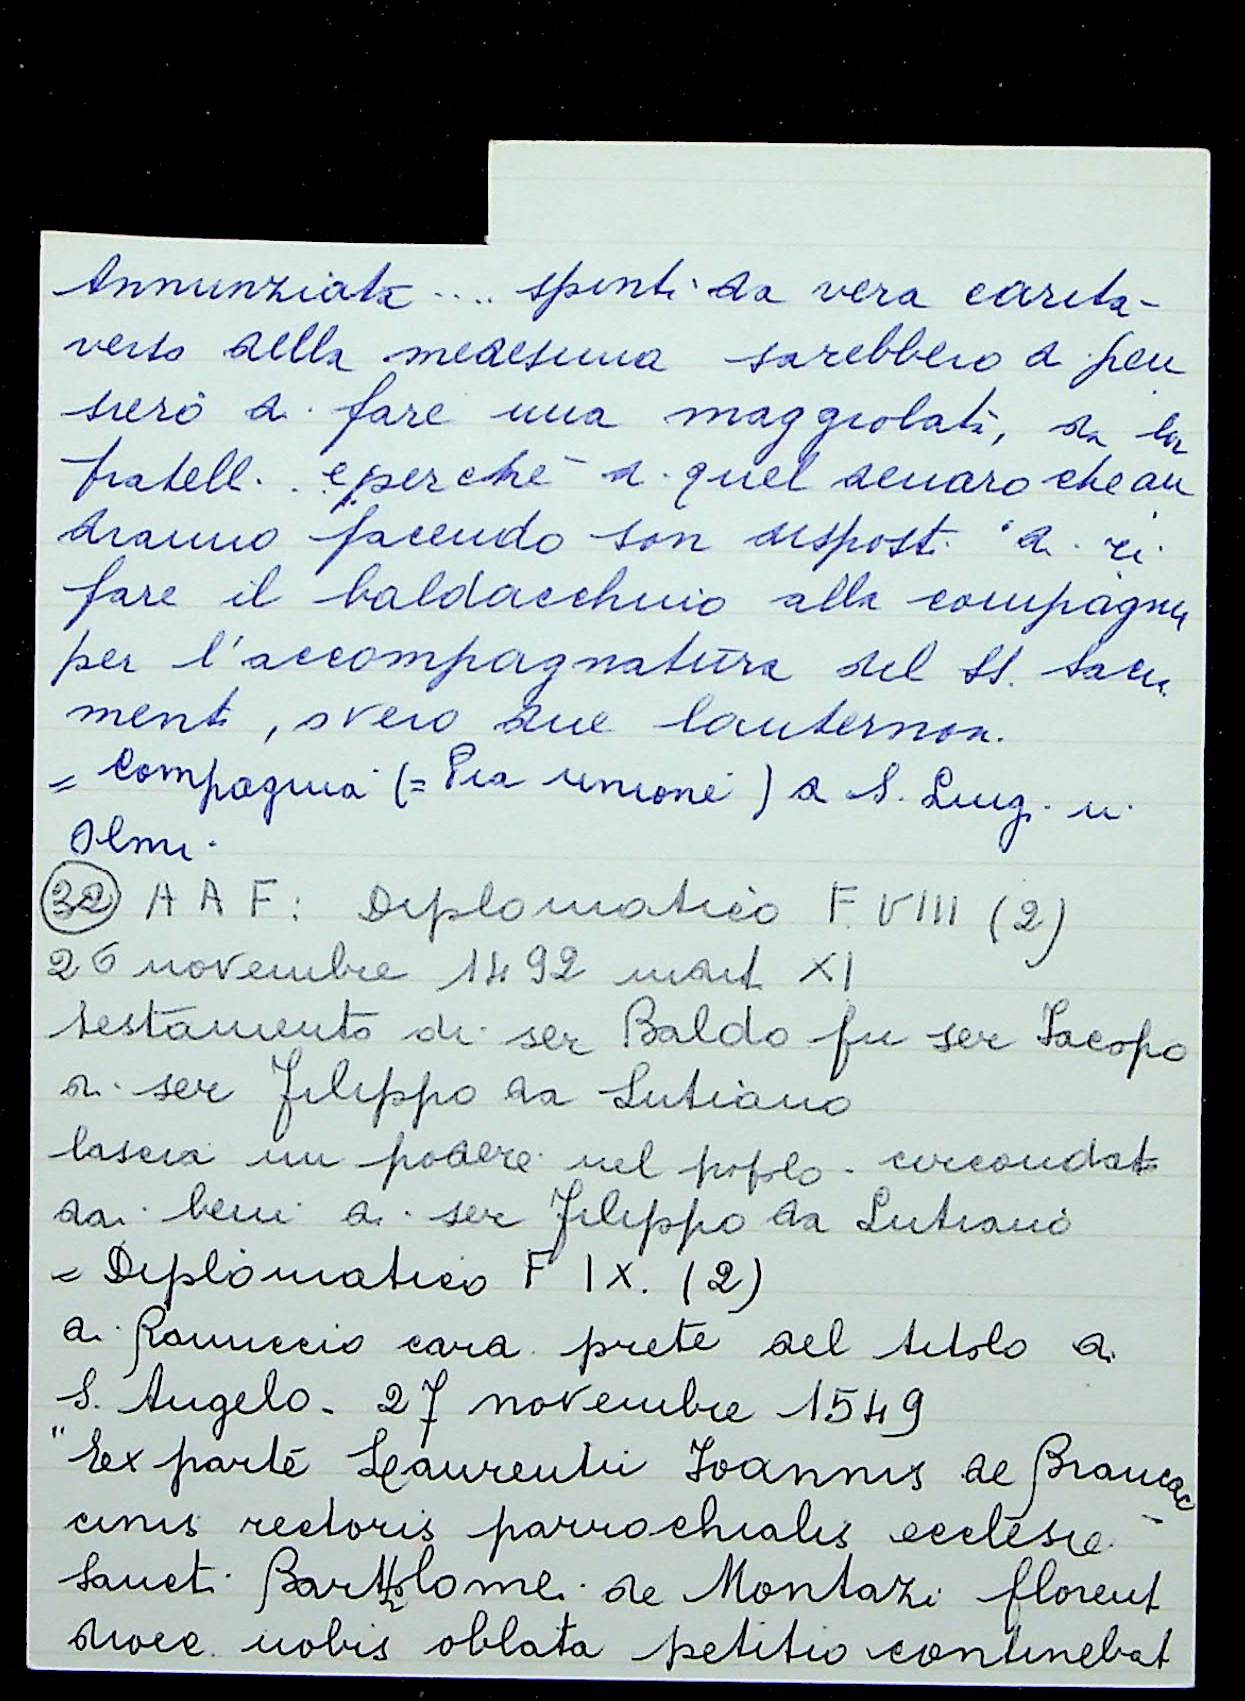 Annunziata .... spinti da vera carità
verso della medesima sarebbero di pen
siero di fare una maggiolata, da lor
fratelli .. e perchè di quel denaro che an
dranno facendo son disposti di ri
fare il baldacchino alla compagnia
per l'accompagnatura del SS. Sacra
mento, overo due lanternoni.
= Compagnia (= Pia unione) di S. Luigi in
Olmi.
(32) A A F: Diplomatico F. VIII (2)
26 novembre 1492 indit XI
testamento di ser Baldo fu ser Iacopo
di ser Filippo da Lutiano
lascia un podere nel popolo - circondato
dai beni di ser Filippo da Lutiano
= Diplomatico F IX. (2)
di Ranuccio card. prete del titolo di
S. Angelo - 27 novembre 1549
"Ex parte Laurentii Joannis de Brancac
cinis rectoris parrochialis ecclesie
Sancti Bartholomei de Montazi florent
dioec. nobis oblata petitio continebat